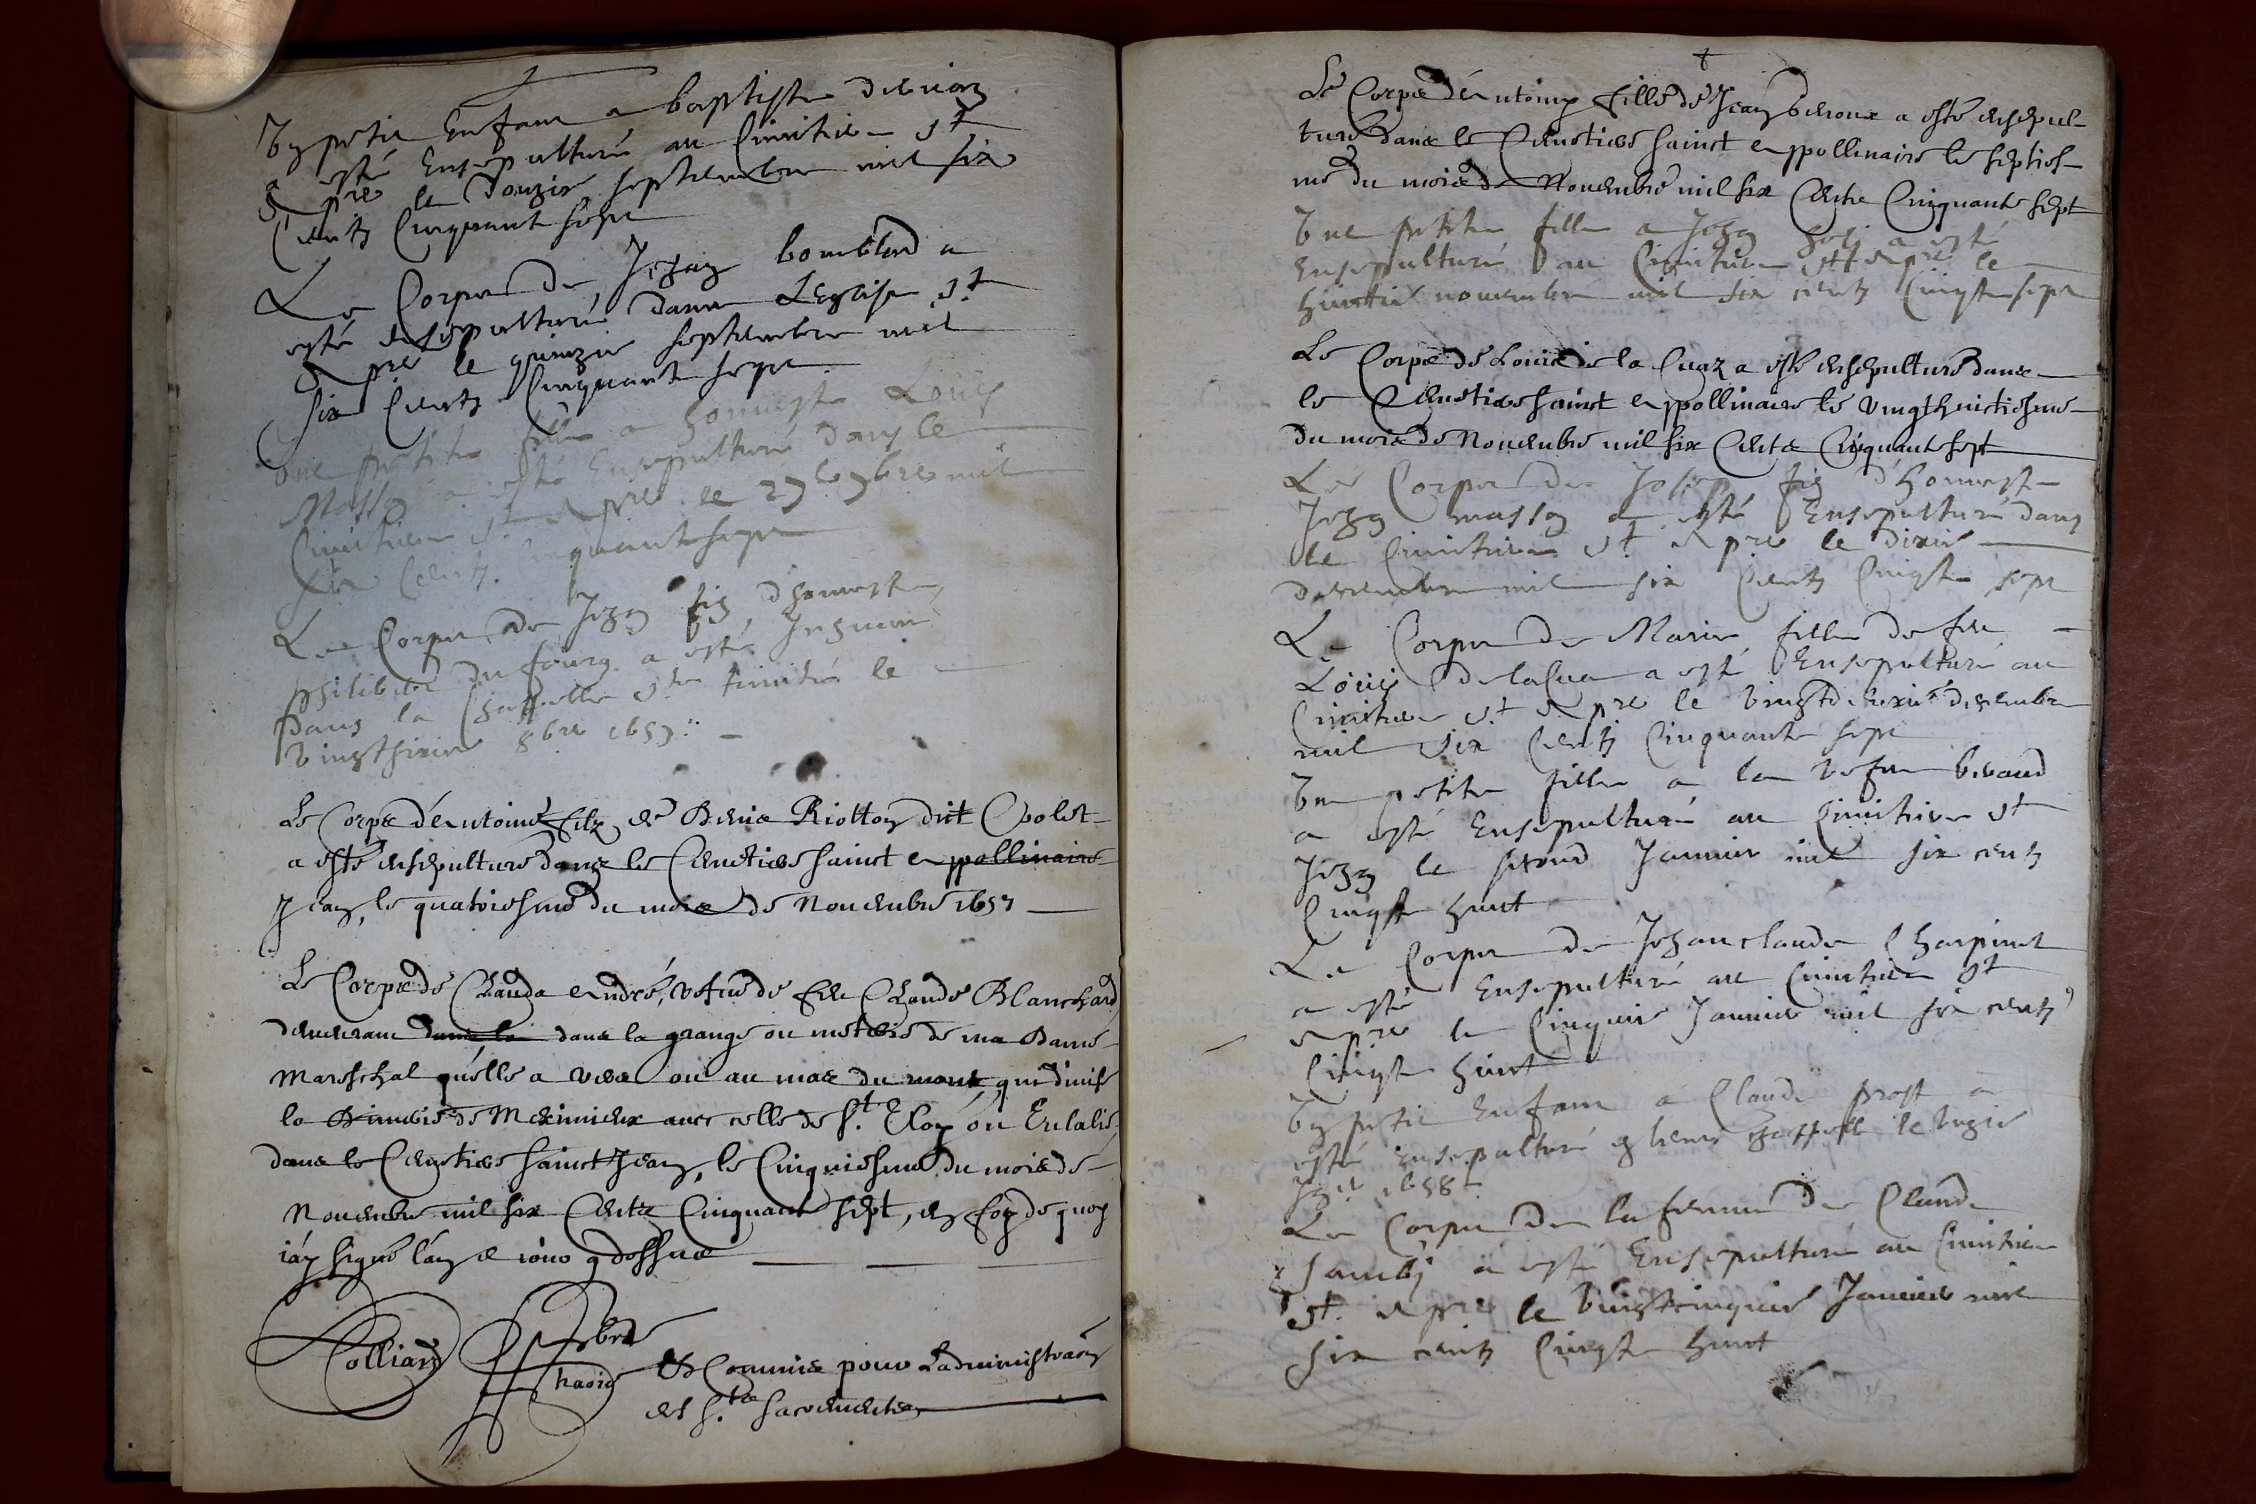 Un petit enfant a baptiste
a esté ensepulturé au cimitiere St
Apre le douzie septembre mil six
cents cinquant sept
Le corps de Jehan bomblard a
esté ensepulturé dans L'Eglise St
Apre le quinzie septembre mil
six cents cinquant sept
Une petite fille a honneste Louys
Masson a esté ensepulturé dans le
cimitiere St Apre le 27e 7bre mil
six cents cinquant sept
Le corps de Jehan fiz d'honneste
philibert du fourg a esté Inhumé
dans la chappelle Ste trinité le
vingt sixie 8bre 1657
Le Corps d'Antoine filz de Denis Riotton dit Colet
a esté ensepulturé dans le Cemetiere sainct Appollinaire
Jean, le quatriesme du mois de Novembre 1657
Le Corps de Clauda André, vefue de feu Claude Blanchard
demeurant dans la dans la grange ou meterie de ma Dame
Mareschal qu'elle a rière ou au mas du mont, qui divise
la de Meximieux avec celle de St. Eloy ou Eulalie
dans le Cemetiere sainct Jean, le Cinquiesme du mois de
Novembre mil six Cents Cinquante sept, en foy de quoy
i'ay signé l'an et iour q dessus
Colliard pbre
Commis pour L'administraon
des Sts sacrements
Le Corps d'Antoine fille de Jean a esté ensepul-
turé dans le Cemetiere sainct Appollinaire le septies-
me du mois de Novembre mil six Cents Cinquante sept
Une petite fille a Jehan a esté
ensepulturé au cimitiere St Apre le
huictie novembre mil six cents cinqte sept
Le Corps de Louis de la Cuaz a esté ensepulturé dans
le Cemetiere sainct Appollinaire le vingthuictiesme
du mois de Novembre mil six Cents Cinquante sept
Le Corps de Josep fiz d'honneste
Jehan masson a esté ensepulturé dans
le cimitiere St Apre le dixie
decembre mil six cents cinqte sept
Le Corps de Marie fille de feu
Louys de la Cua a esté ensepulturé au
cimitiere St Apre le vingtdeuxie decembre
mil six cents cinquante sept
Une petite fille a la vefue beraud
a esté ensepulturé au cimitiere St
Jehan le second Janvier mil six cents
cinqte huict
Le Corps de Jehan claude Charpinet
a esté ensepulturé au cimitiere St
Apre le cinquie Janvier mil six cents
cinqte huict
Un petit enfant a Claude prost a
esté ensepulturé le unzie
1658
Le Corps de la femme de Claude
a esté ensepulturé au cimitiere
St Apre le vingtcinquie Janvier mil
six cents cinqte huict